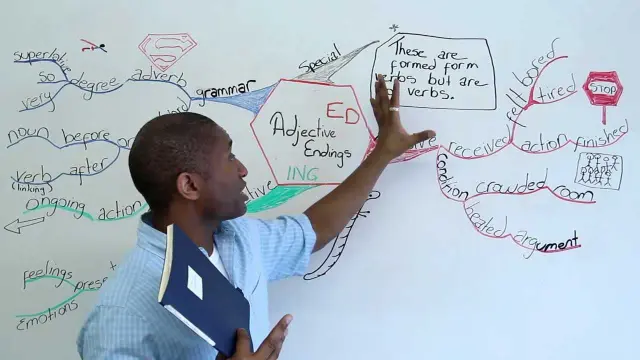 superlative
so
very
degree
adverb
grammar
Special
*
These are
formed form
verbs but are
verbs.
ED
Adjective
Endings
ING
noun
before
verb
(linking)
after
ongoing
action
feelings
emotions
received
action
finished
bored
tired
STOP
condition
crowded
room
heated
argument